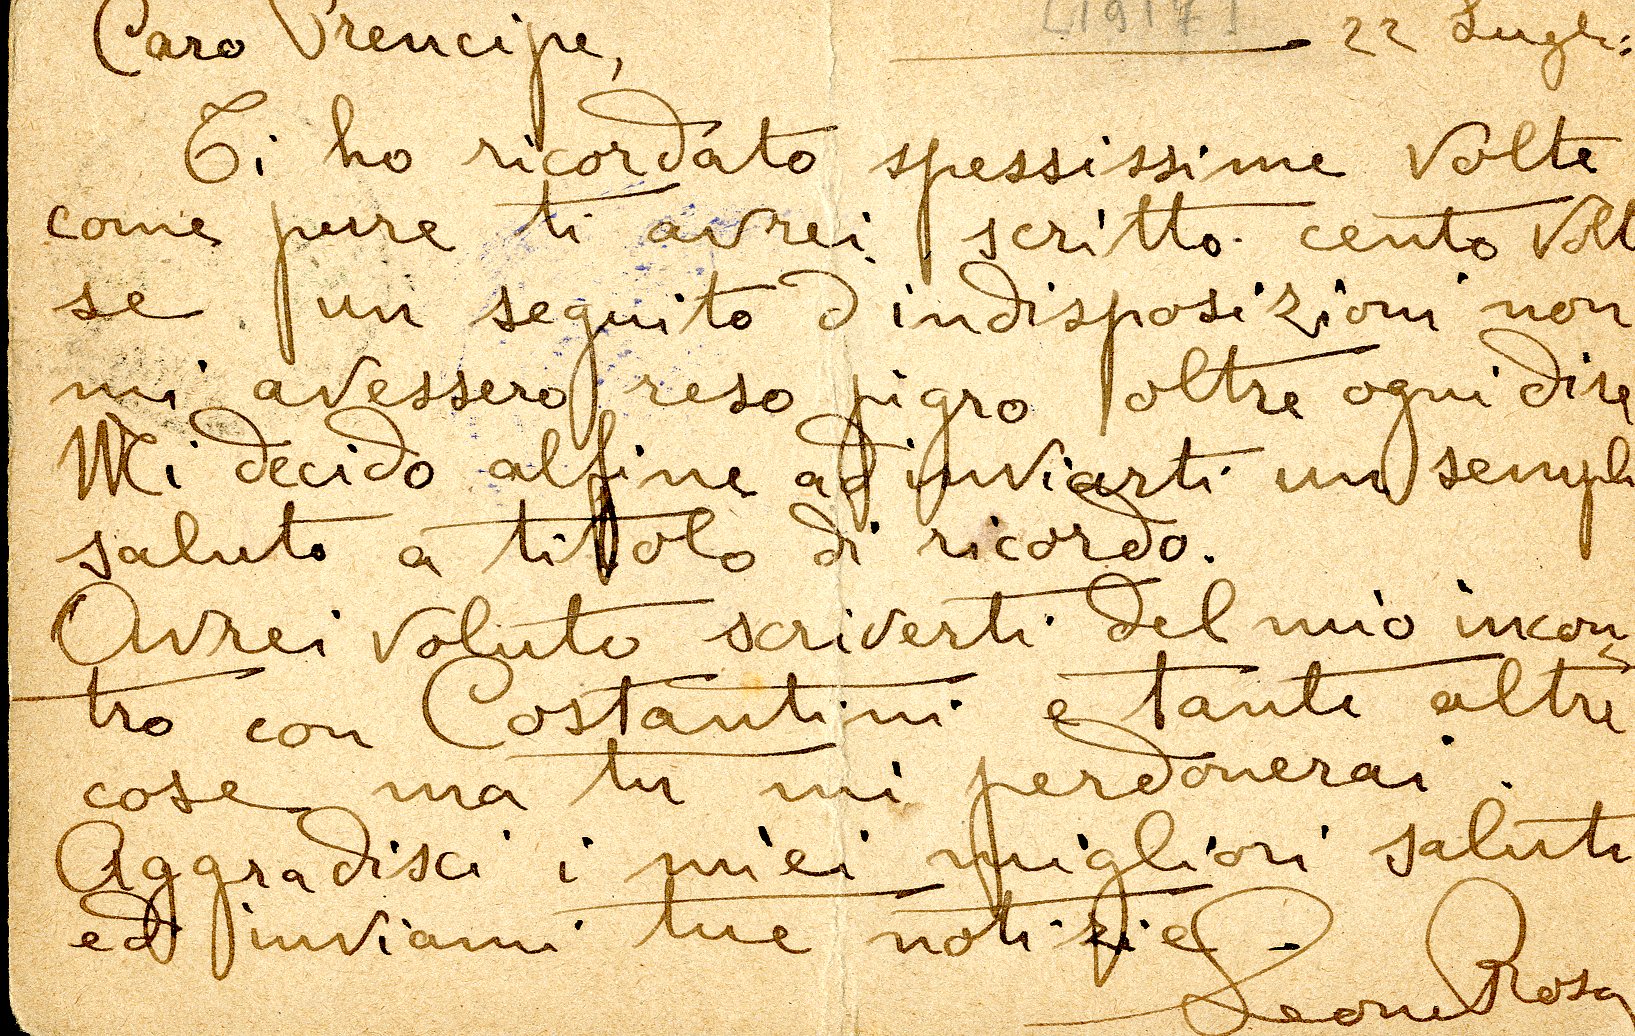 [1917]
Caro Prencipe, 22 Lugli:
Ti ho ricordato spessissime volte
come pure ti avrei scritto cento volt
se un seguito d'indisposizioni non
mi avessero reso pigro oltre ogni dire
Mi decido alfine ad inviarti un sempli
saluto a titolo di ricordo.
Avrei voluto scriverti del mio incon
tro con Costantini e tante altre
cose ma tu mi perdonerai.
Aggradisci i miei migliori saluti
ed inviami tue notizie.
Leone Rosa